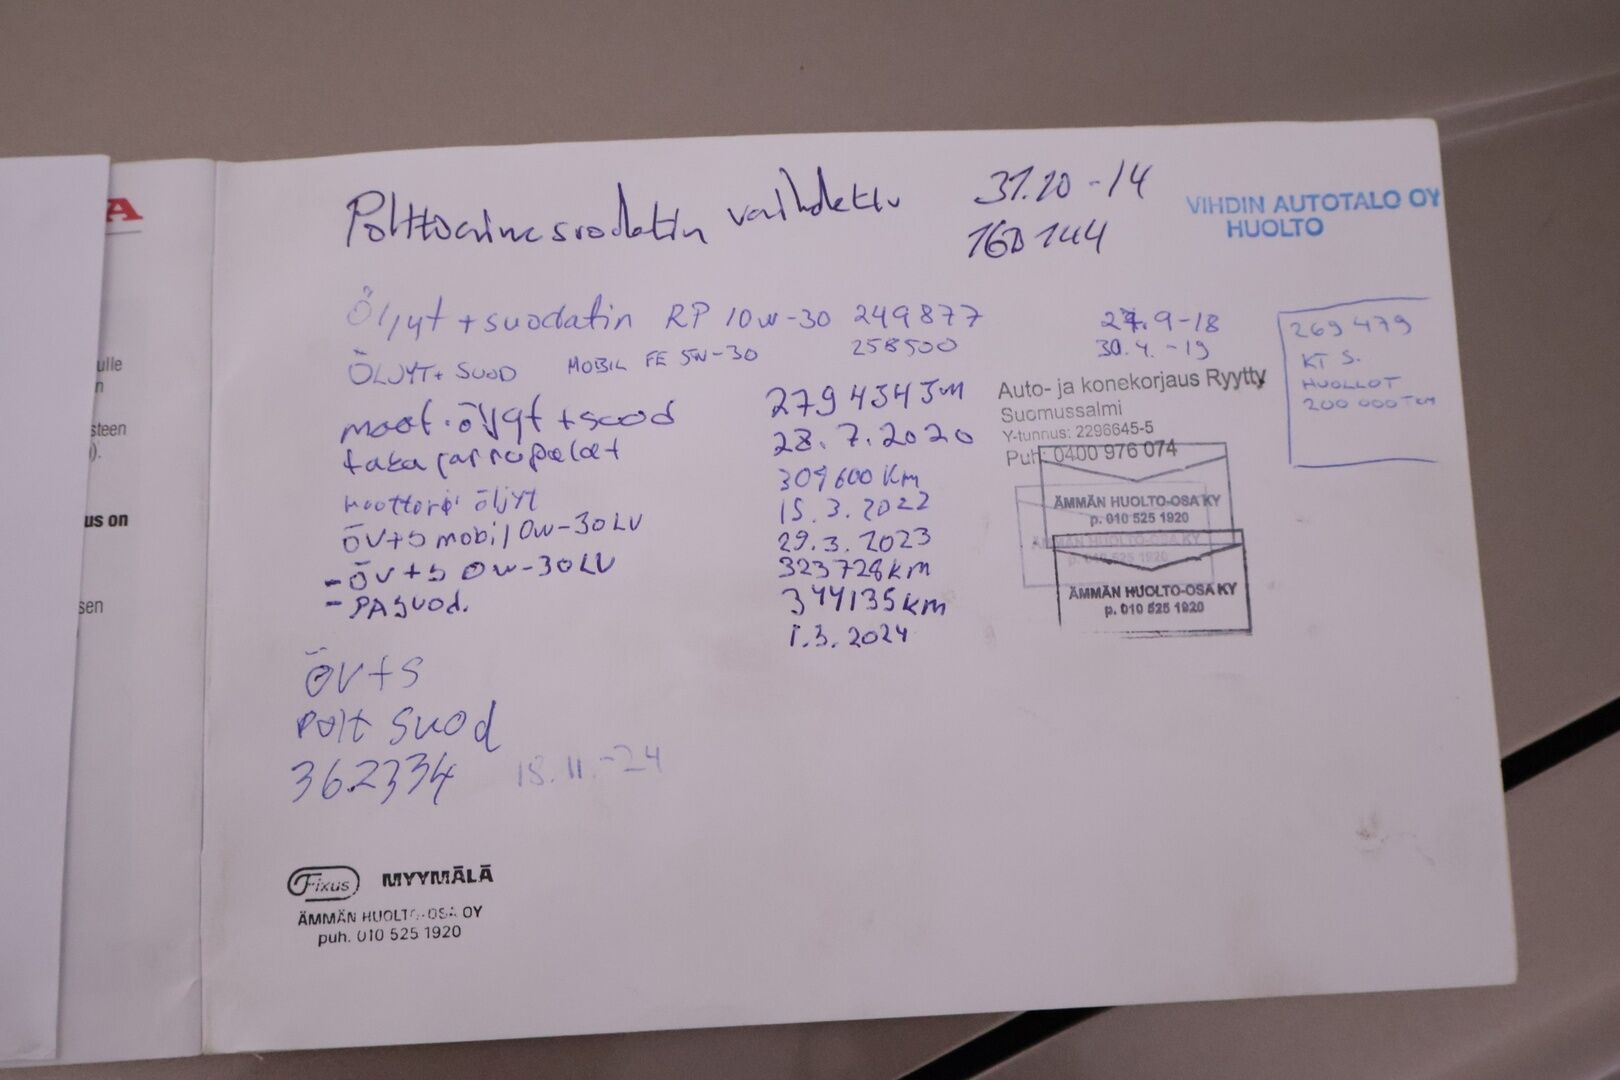 A
ulle
n
steen
).
us on
sen
Polttoainesuodatin vaihdettu 31.10-14
160144
VIHDIN AUTOTALO OY
HUOLTO
Öljyt + suodatin RP 10w-30 249877 27.9-18
ÖLJYT+ SUOD MOBIL FE 5W-30 258500 30.4.-19
269479
KT S.
HUOLLOT
200 000 TKM
moot.öljyt + suod 279434
taka jarrupalat 28.7.2020
Auto- ja konekorjaus Ryytty
Suomussalmi
Y-tunnus: 2296645-5
Puh: 0400 976 074
309600 Km
moottori öljyt 15.3.2022
ÖV+S mobil 0w-30LV 29.3.2023
-ÖV+S 0W-30LV 323728km
-PASUOD. 344135km
1.3.2024
ÄMMÄN HUOLTO-OSA KY
p. 010 525 1920
ÄMMÄN HUOLTO-OSA KY
p. 010 525 1920
ÄMMÄN HUOLTO-OSA KY
p. 010 525 1920
ÖV+S
Polt Suod
362334 18.11.-24
Fixus MYYMÄLÄ
ÄMMÄN HUOLTO-OSA OY
puh. 010 525 1920